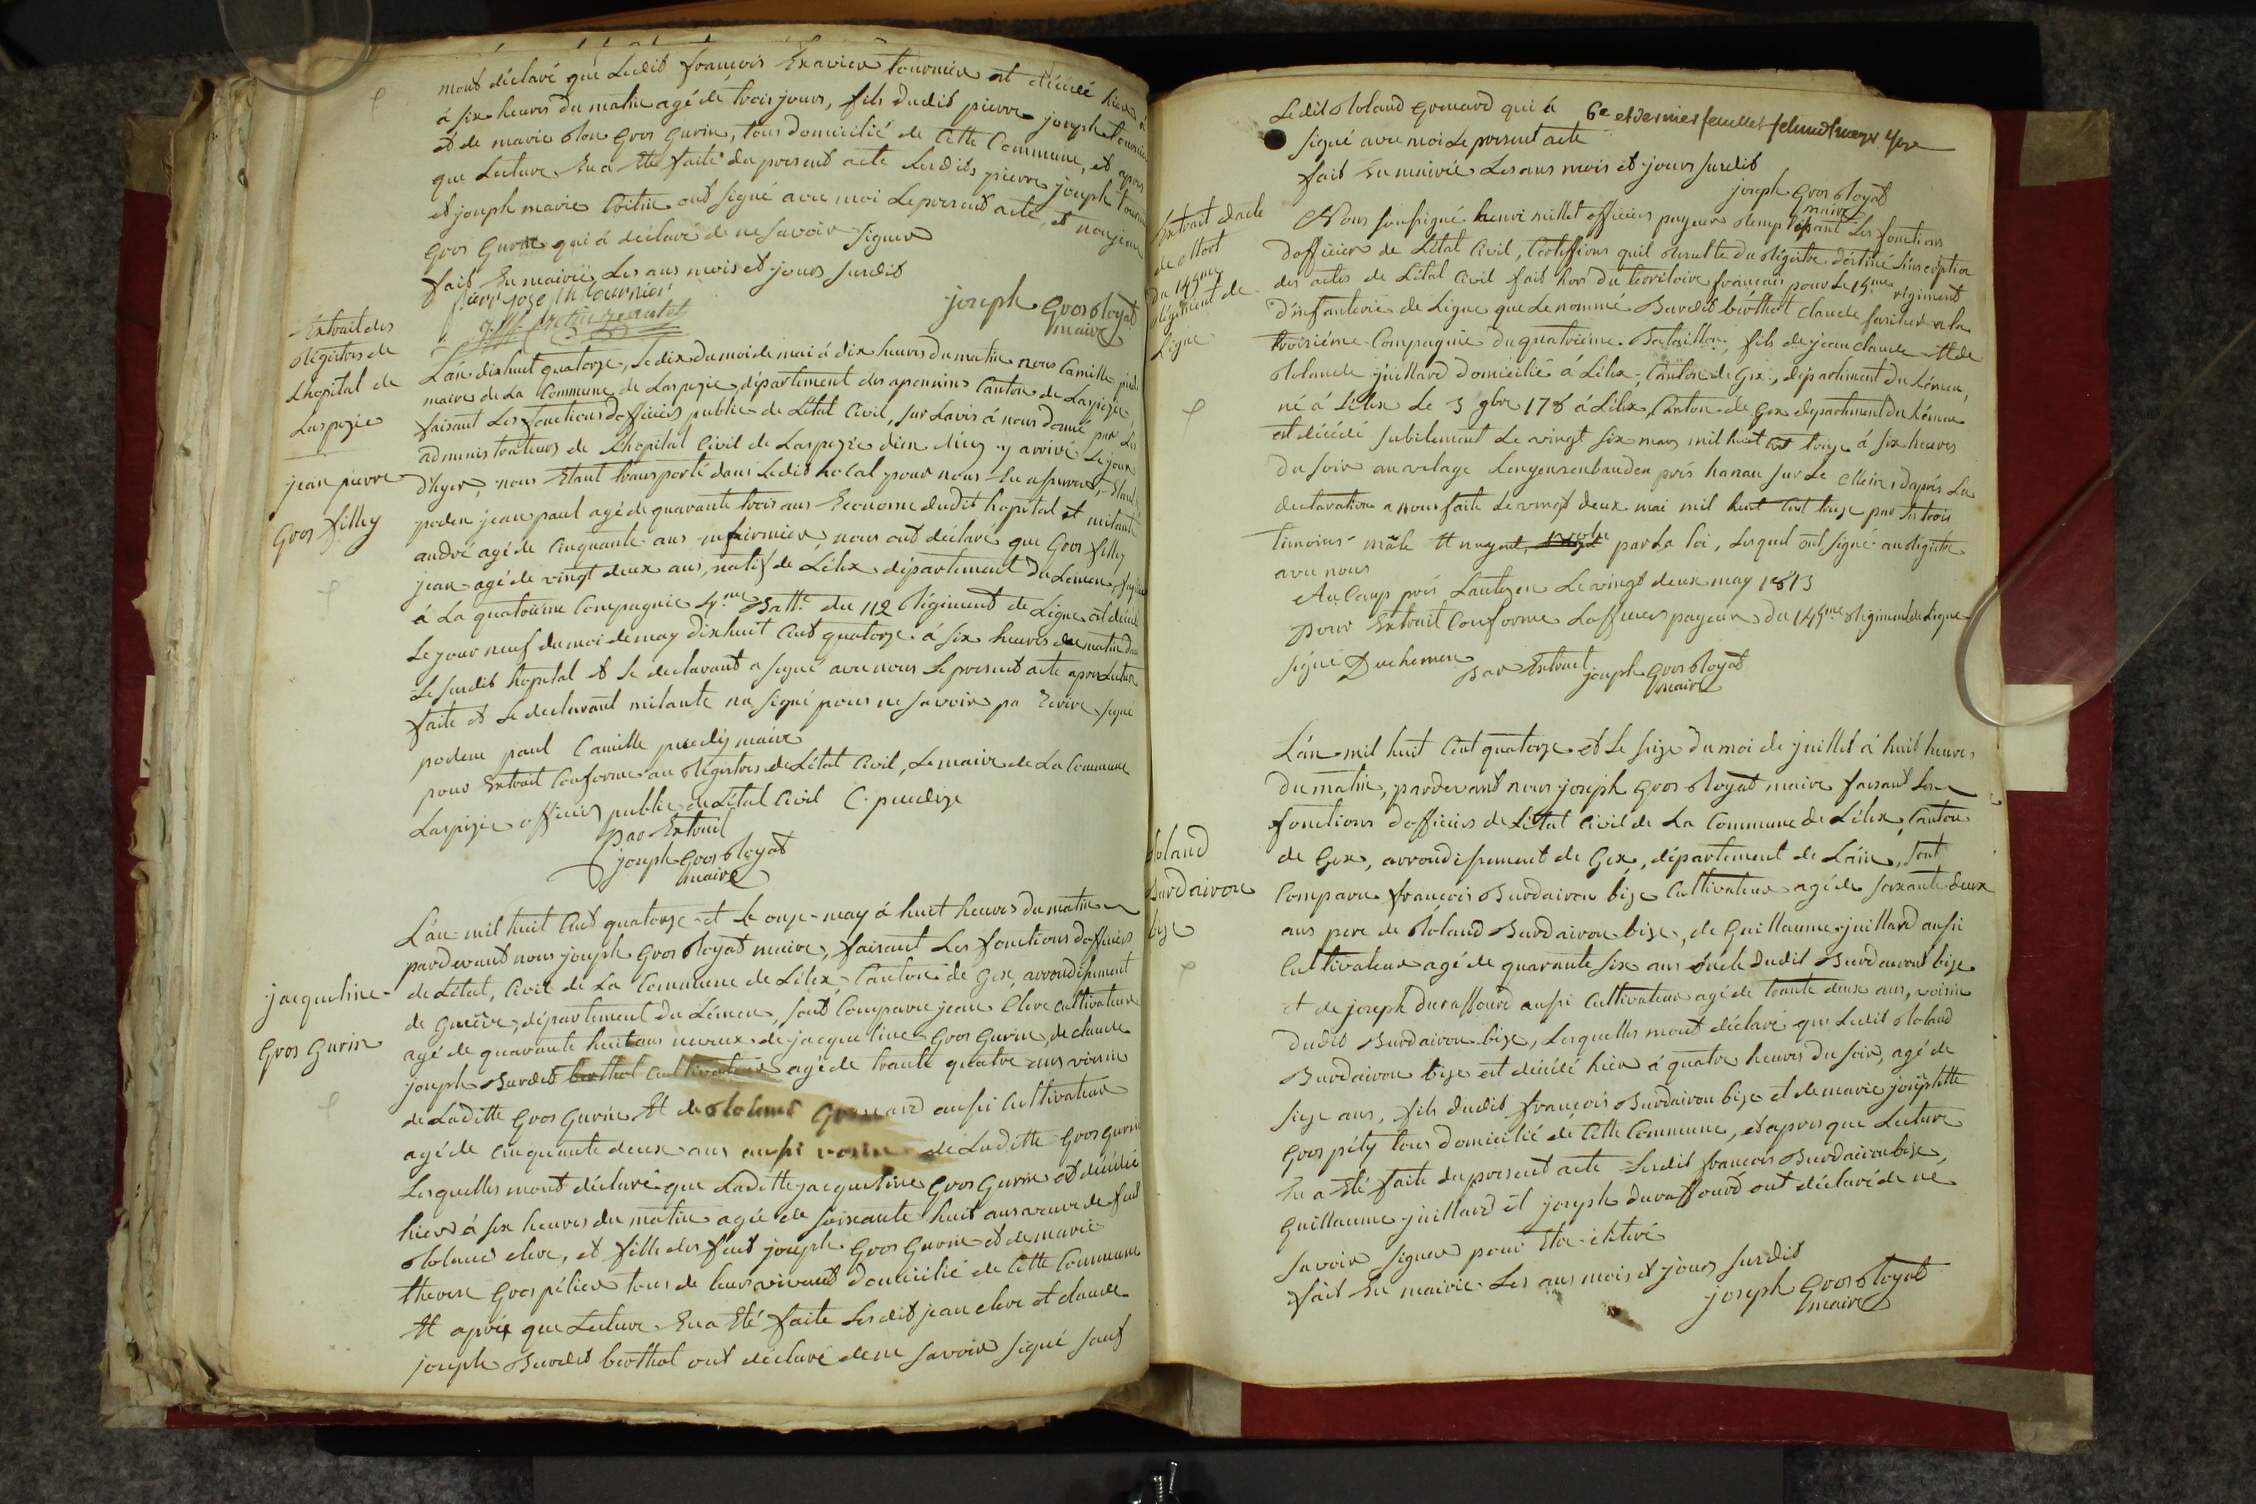 mont déclaré que Ledit françois Exavier tournier est décédé hier
à six heures du matin agé de trois jours, fils dudit pierre joseph tournier
et de marie Gros Gurin, tous domicilié de Cette Commune, et après
que Lecture En a Eté faite du present acte Lesdits pierre joseph tournier
et joseph marie ont signé avec moi Le present acte, et non jean
Gros Gurin qui à déclaré de ne savoir signer
fait En mairie Les ans mois et jours surdit
pierr joseph tournier
joseph Gros Royat
maire
Extrait des
Régistres de
Lhopital de
Laspezie
jean pierre
Gros filley
L'an dixhuit quatorze, Le dix du moi de mai à dix heures du matin nous Camille
maire de La Commune de Laspezie département des apennins Canton de Laspezie
faisant Les fonctions d'officier public de L'état Civil, sur Lavis à nous donné par Les
administrateurs de Lhopital Civil de Laspezie d'un décès y arrivé Le jour
d'hyer, nous Etant transporté dans Ledit Local pour nous En assurer, Etant
poden jean paul agé de quarante trois ans Econome dudit hopital et milante
andré agé de Cinquante ans infirmier, nous ont déclaré que Gros filley
jean agé de vingt deux ans, natif de Lélex département du Leman
à La quatrieme Compagnie 4me Batt. du 112 Régiment de Ligne est décédé
Le jour neuf du moi de may dixhuit Cent quatorze à six heures du matin dans
Le surdit hopital et Le declarant a signé avec nous Le present acte apres Lecture
faite et Le declarant milante na signé pour ne savoir pa Ecrire signé
poden paul Camille maire
pour Extrait Conforme au Régistres de L'état Civil, Le maire de La Commune
Laspezie officier public de L'état Civil C.
Par Extrait
joseph Gros Royat
maire
jacqueline
Gros Gurin
L'an mil huit Cent quatorze et le onze may à huit heures du matin
pardevant nous joseph Gros Royat maire, faisant Les fonctions d'officier
de L'état, Civil de La Commune de Lélex, Canton de Gex, arrondissement
de Genève, département du Léman, sont Comparu jean Eleve Cultivateur
agé de quarante huit ans neveux de jacqueline Gros Gurin, de claude
joseph Burdet berthet Cultivateur agé de trante quatre ans voisin
de Laditte Gros Gurin Et de Roland Grenard aussi Cultivateur
agé de Cinquante deux ans aussi voisin de Laditte Gros Gurin
Lesquelles mont déclaré que Laditte jacqueline Gros Gurin est décédée
hier à six heures du matin agée de soixante huit ans veuve de feut
Roland eleve, et fille des feut joseph Gros Gurin et de marie
therese Grospélier tous de leurs vivant domicilié de Cette Commune
Et après que Lecture En a Eté faite Lesdit jean eleve et claude
joseph Burdet berthet ont déclaré de ne savoir signé sauf
Ledit Roland Grenard qui à
signé avec moi Le present acte
6e et dernier feuillet
fait En mairie Les ans mois et jours surdit
joseph Gros Royat
maire
Extrait dacte
de Mort
du 145me
Régiment de
Ligne
Nous sousigné henri millet officier payeur Remplissant Les fonctions
d'officier de L'état Civil, Certiffions quil Resulte du Régistre destiné Linscription
des actes de L'état Civil fait hors du territoire français pour Le 145me régiment
d'infanterie de Ligne que Le nommé Burdet berthet Claude fusilier à la
troisiéme Compagnie du quatrieme Bataillon, fils de jean claude et de
Rolande juillard domicilié à Lélex, Canton de Gex, département du Léman,
né à Lélex Le 3 9bre 178 à Lélex, Canton de Gex département du Léman
est décédé subitement Le vingt six mars mil huit Cent treize à six heures
du soir au vilage Lengensenbauden près hanau sur Le Mein, d'après La
declaration a nous faite Le vingt deux mai mil huit Cent treize par Les trois
témoins mâle et par La loi, Lesquel ont signé au Régistre
avec nous
Au Camp près Lautzen Le vingt deux may 1813
pour Extrait Conforme Lofficier payeur du 145me Régiment de Ligne
signé Duchemen
Par Extrait
joseph Gros Royat
maire
Roland
Burdairon
bize
L'an mil huit Cent quatorze et Le seize du moi de juillet à huit heures
du matin, pardevant nous joseph Gros Royat maire faisant Les
fonctions d'officier de L'état Civil de La Commune de Lélex, Canton
de Gex, arrondissement de Gex, département de L'ain, sont
Comparu françois Burdairon bize Cultivateur agé de soixante deux
ans pere de Roland Burdairon bize, de Guillaume juillard aussi
Cultivateur agé de quarante six ans oncle dudit Burdairon bize
et de joseph duraffourd aussi Cultivateur agé de trante deux ans, voisin
dudit Burdairon bize, Lesquelles mont déclaré que Ledit Roland
Burdairon bize est décédé hier à quatre heures du soir, agé de
sieze ans, fils dudit françois Burdairon bize et de marie josephtte
Grospély tous domicilié de Cette Commune, et apres que Lecture
En a Eté faite du present acte Lesdit françois Burdairon bize,
Guillaume juillard et joseph duraffourd ont déclaré de ne
savoir signer pour Etre illitéré
fait En mairie Les ans mois et jours surdit
joseph Gros Royat
maire